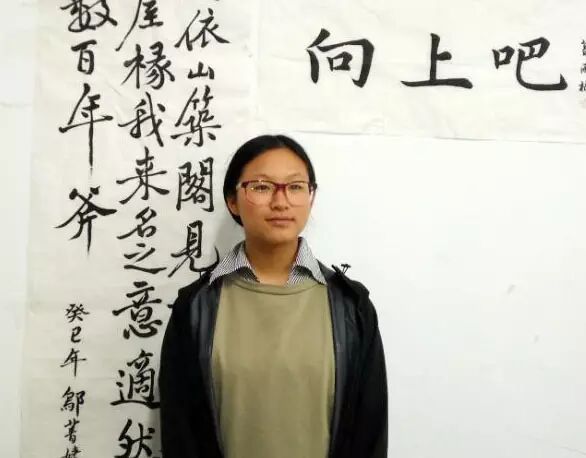 向上吧
依山築閣見
屋椽我来名之意適然
數百年斧
癸巳年 鄒菁